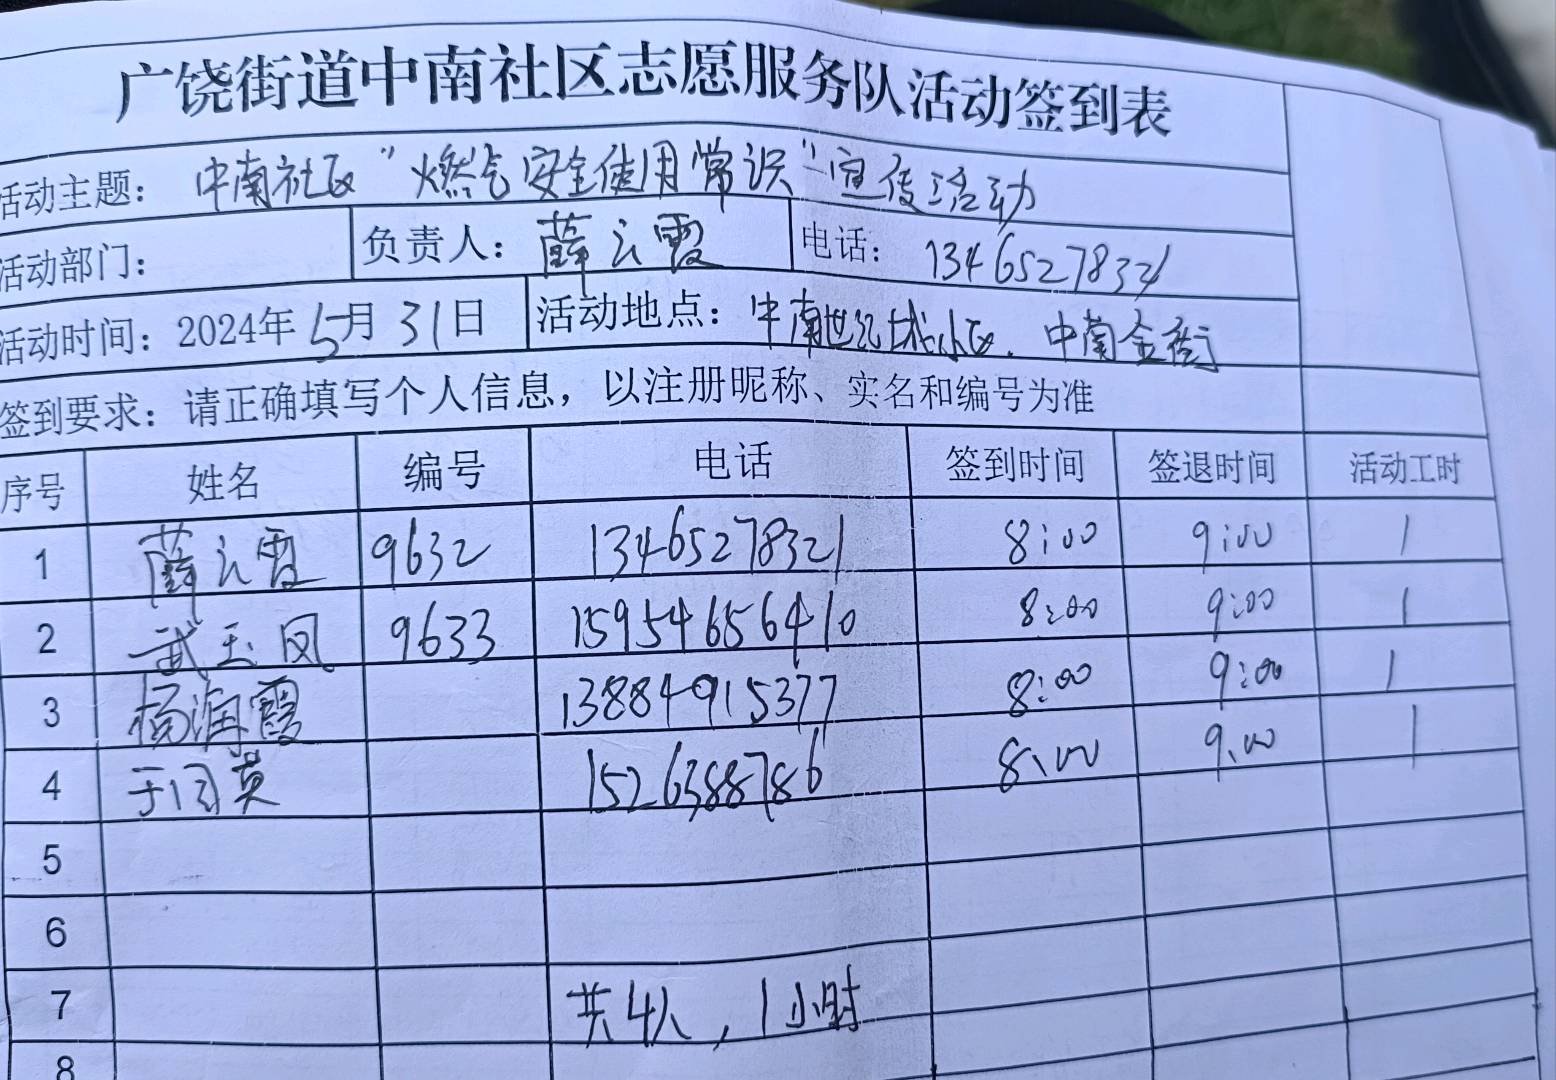 广饶街道中南社区志愿服务队活动签到表
活动主题: 中南社区“燃气安全使用常识”宣传活动
活动部门: 负责人: 薛云霞 电话: 13465278321
活动时间: 2024年5月31日 活动地点: 中南世纪城小区、中南金街
签到要求: 请正确填写个人信息，以注册昵称、实名和编号为准
序号 姓名 编号 电话 签到时间 签退时间 活动工时
1 薛云霞 9632 13465278321 8:00 9:00 1
2 武玉凤 9633 15954656410 8:00 9:00 1
3 杨润霞 13884915377 8:00 9:00 1
4 于闫英 15263888786 8:00 9:00 1
5
6
7 共4人，1小时
8